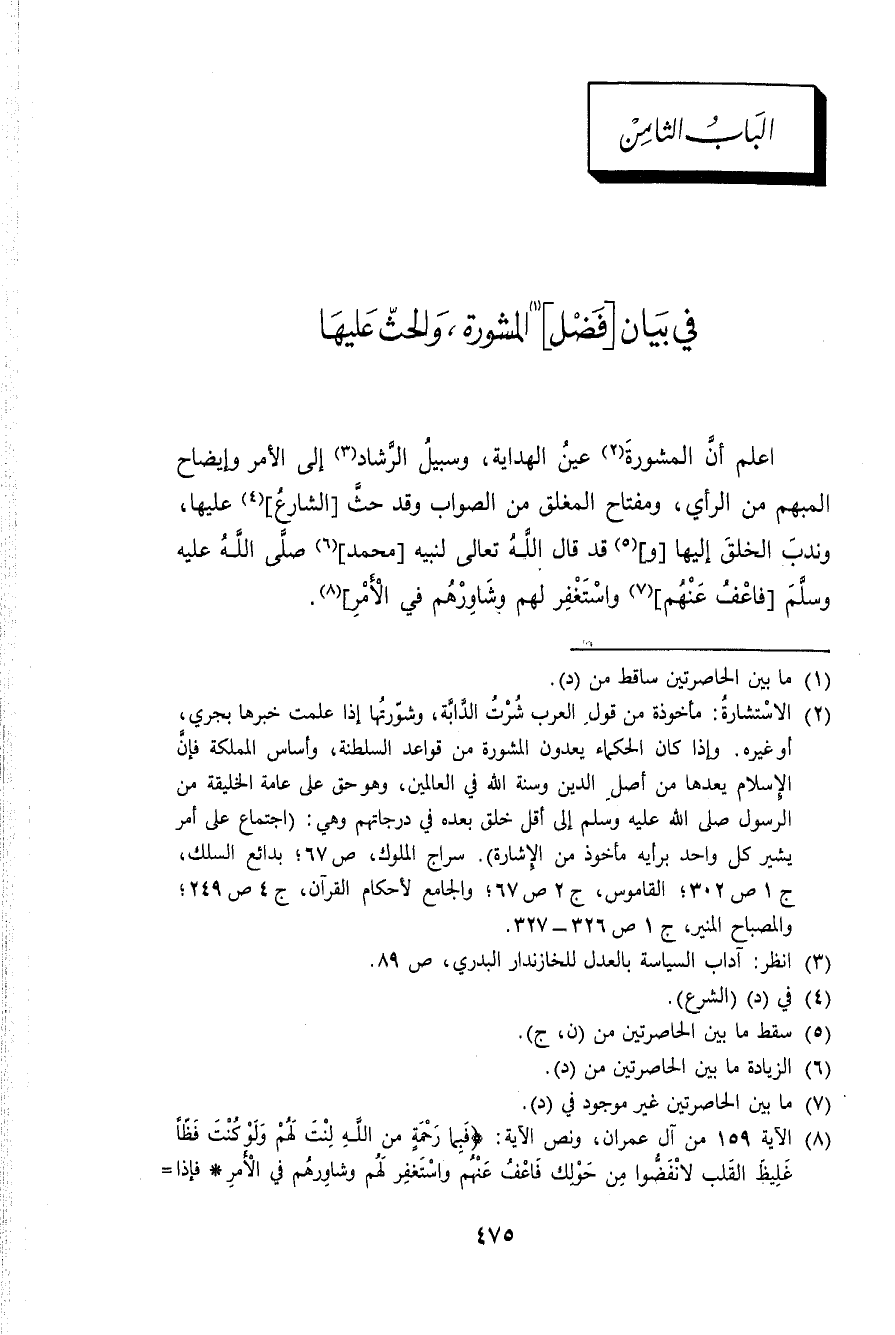 البَابُ الثامِنْ
في بَيَان [فَضْل]⁽١⁾ المشورة، وَالحثّ عَليهَا
اعلم أنَّ المشورةَ(٢) عينُ الهداية، وسبيلُ الرَّشاد(٣) إلى الأمر وإيضاح
المبهم من الرأي، ومفتاح المغلق من الصواب وقد حثَّ [الشارعُ](٤) عليها،
وندبَ الخلقَ إليها [و](٥) قد قال اللَّـهُ تعالى لنبيه [محمد](٦) صلَّى اللَّـهُ عليه
وسلَّمَ [فاعْفُ عَنْهُم](٧) واسْتَغْفِر لهم وشَاوِرْهُم في الْأَمْرِ](٨).
(١) ما بين الحاصرتين ساقط من (د).
(٢) الاسْتشارةُ: مأخوذة من قولِ العرب شُرْتُ الدَّابَّة، وشوّرتُها إذا علمت خبرها بجري،
أو غيره. وإذا كان الحكماء يعدون المشورة من قواعد السلطنة، وأساس المملكة فإنَّ
الإسلام يعدها من أصلِ الدين وسنة الله في العالمين، وهو حق على عامة الخليقة من
الرسول صلى الله عليه وسلم إلى أقل خلق بعده في درجاتهم وهي: (اجتماع على أمر
يشير كل واحد برأيه مأخوذ من الإشارة). سراج الملوك، ص ٦٧؛ بدائع السلك،
ج ١ ص ٣٠٢؛ القاموس، ج ٢ ص ٦٧؛ والجامع لأحكام القرآن، ج ٤ ص ٢٤٩؛
والمصباح المنير، ج ١ ص ٣٢٦ – ٣٢٧.
(٣) انظر: آداب السياسة بالعدل للخازندار البدري، ص ٨٩.
(٤) في (د) (الشرع).
(٥) سقط ما بين الحاصرتين من (ن، ج).
(٦) الزيادة ما بين الحاصرتين من (د).
(٧) ما بين الحاصرتين غير موجود في (د).
(٨) الآية ١٥٩ من آل عمران، ونص الآية: ﴿فَبِما رَحْمَةٍ من اللَّـهِ لِنْتَ لَهُمْ وَلَوْ كُنْتَ فَظّاً
غَلِيظَ القَلب لانْفَضُّوا مِن حَوْلِك فَاعْفُ عَنْهُم واسْتَغفِر لَهُم وشاورهُم في الْأَمرِ * فإذا =
٤٧٥